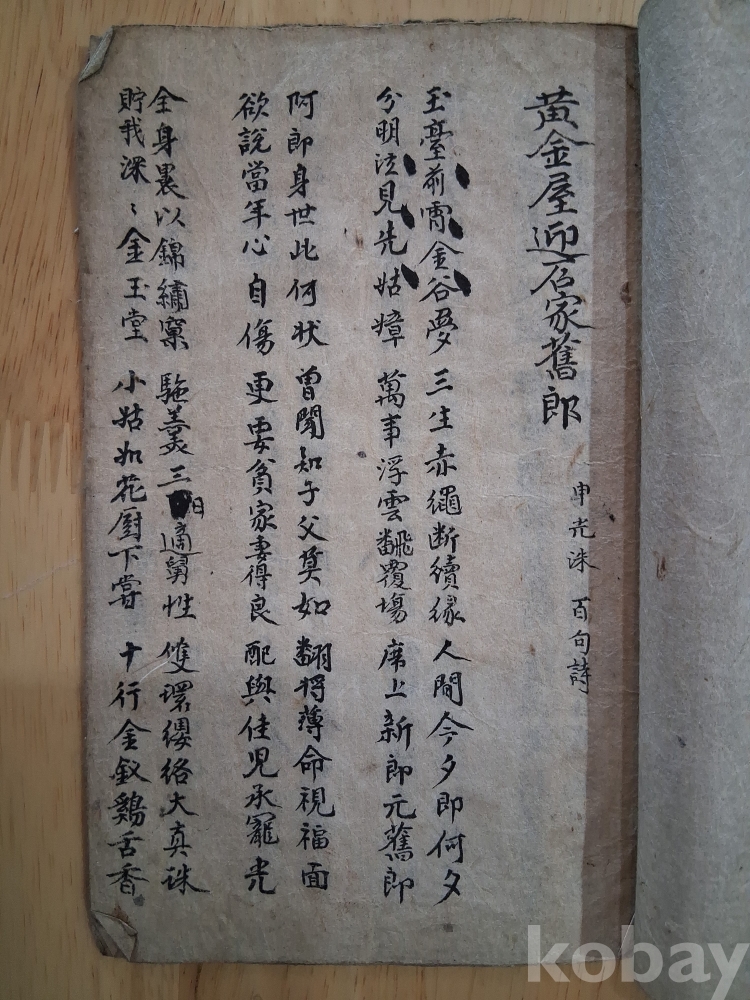 黃金屋迎石家舊郎
申光洙 百句詩
玉臺前霄金谷夢 三生赤繩斷續緣 人間今夕即何夕
分明泣見先姑嫜 萬事浮雲飜覆場 席上新郎元舊郎
阿郎身世此何狀 曾聞知子父莫如 翻將薄命視福面
欲說當年心自傷 更要貧家妻得良 配與佳兒承寵光
全身裹以錦繡窠 駞羹三日適舅性 雙環纓絡大真珠
貯我深〻金玉堂 小姑如花厨下嘗 十行金釵鷄舌香
kobay